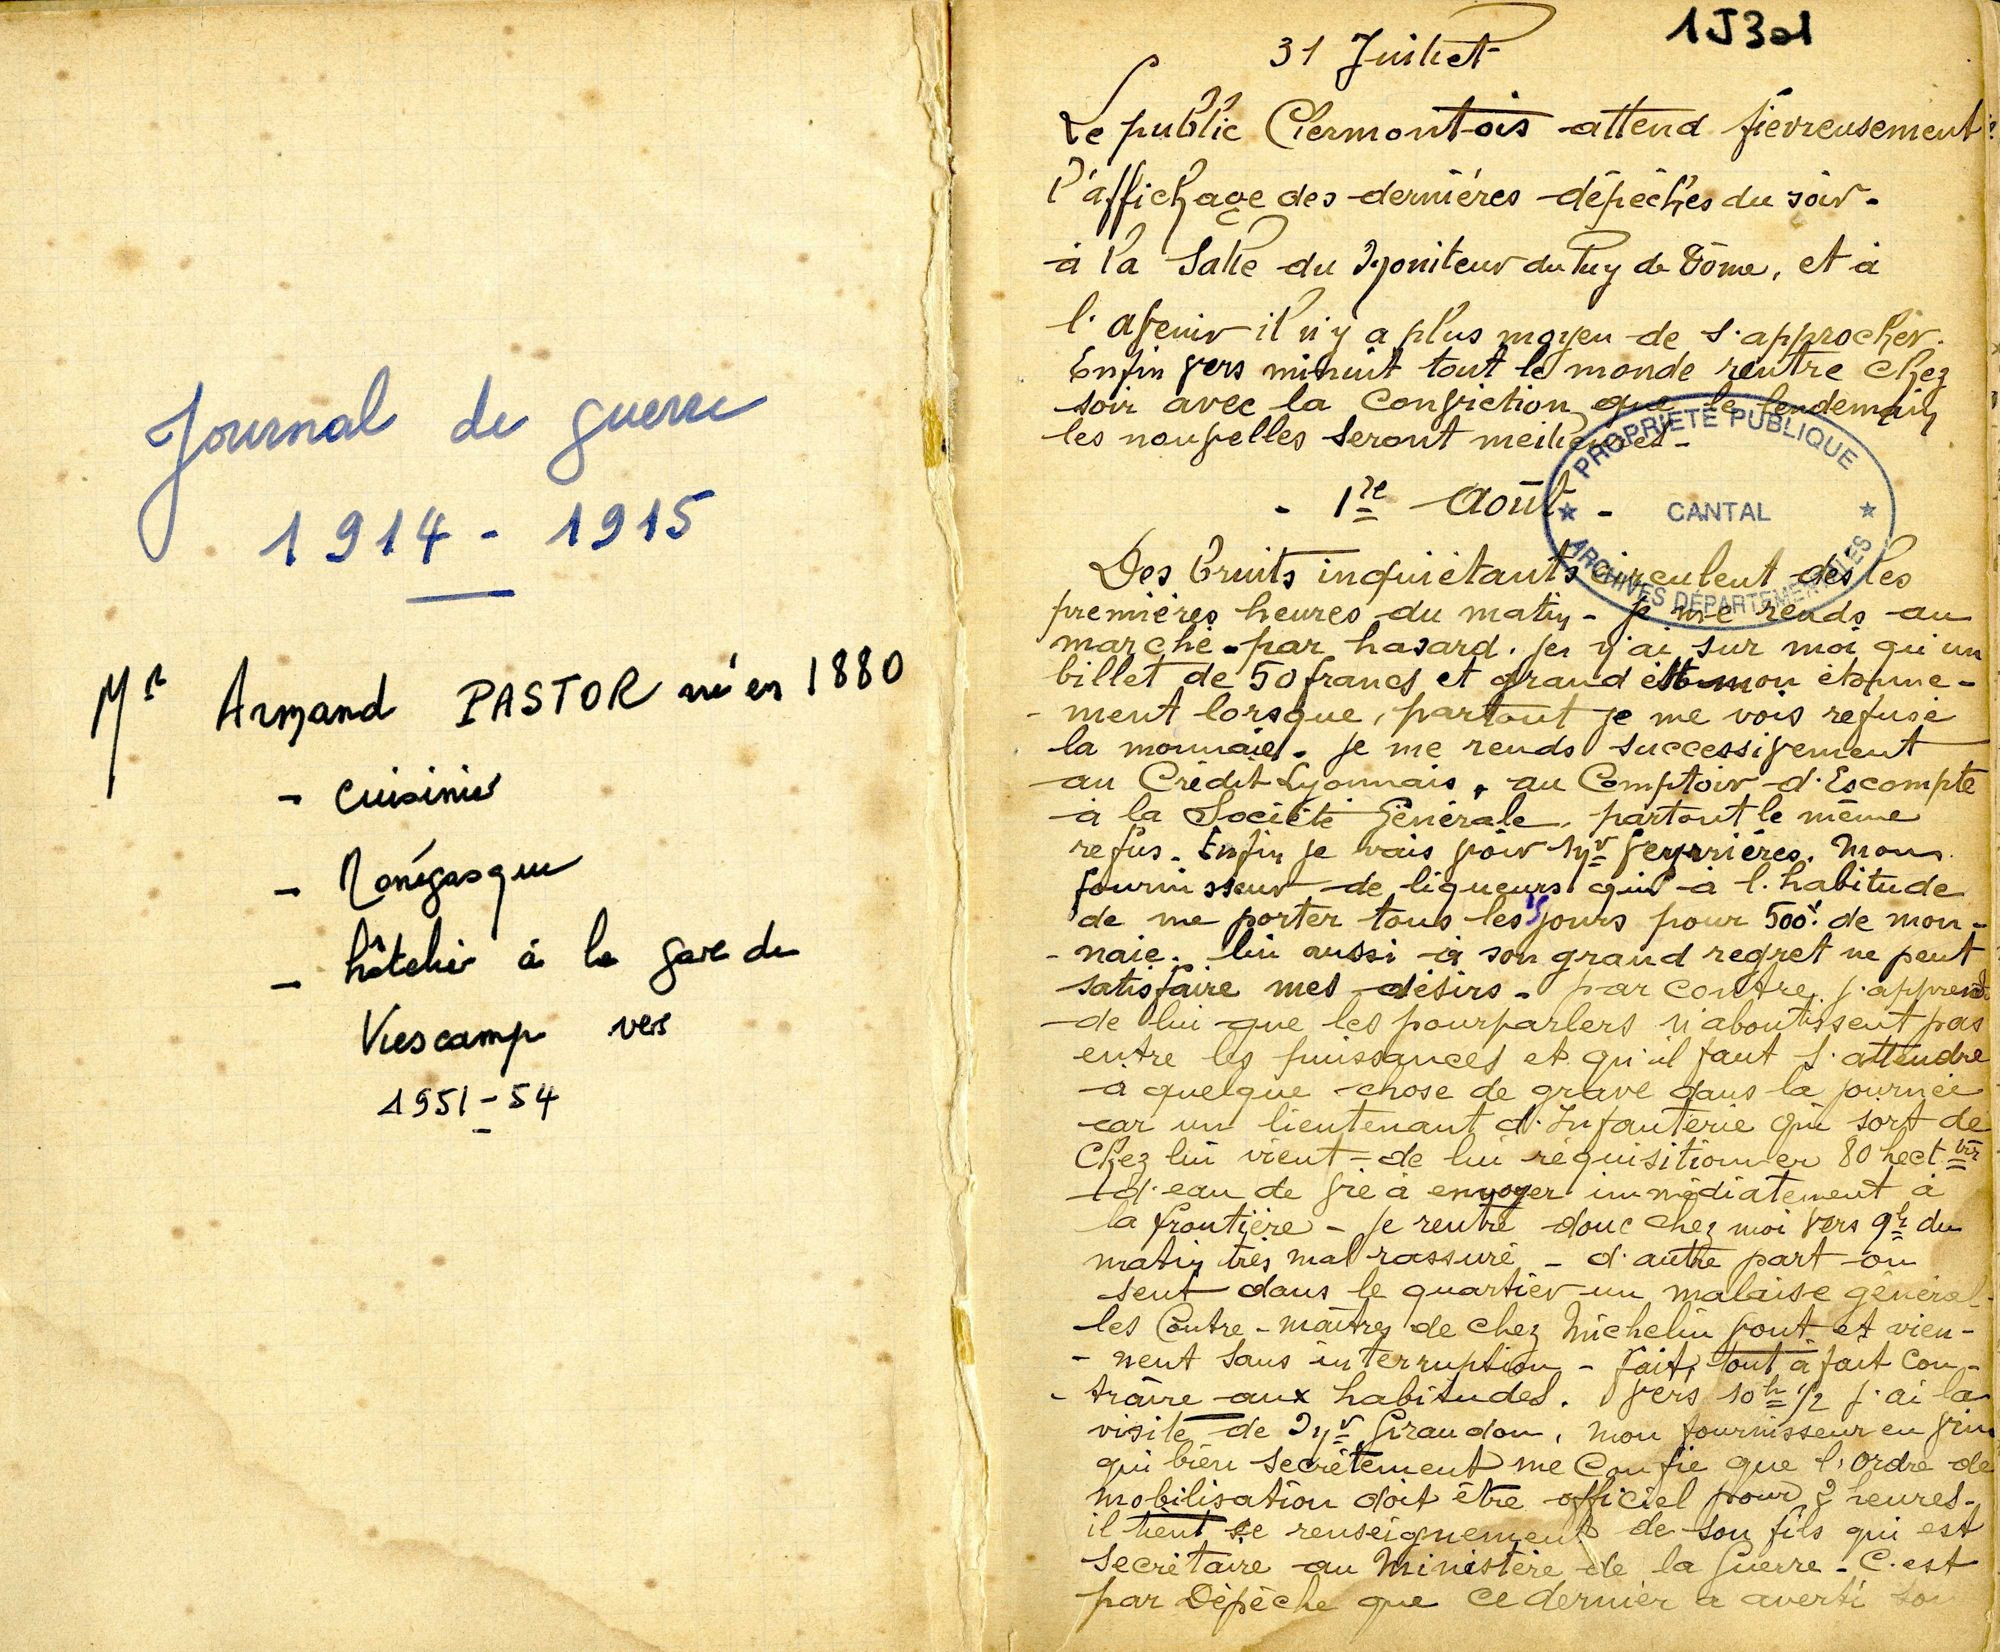 Journal de guerre
1914 - 1915
Mr Armand PASTOR né en 1880
- cuisinier
- Monégasque
- hôtelier à la gare de
Viescamp vers
1951-54
1J301
31 Juillet
Le public Clermontois attend fiévreusement
l'affichage des dernières dépêches du soir -
à la Salle du Moniteur du Puy de Dôme, et à
l'avenir il n'y a plus moyen de s'approcher.
Enfin vers minuit tout le monde rentre chez
soir avec la conviction que le lendemain
les nouvelles seront meilleures -
PROPRIÉTÉ PUBLIQUE
CANTAL
ARCHIVES DÉPARTEMENTALES
- 1re Août -
Des bruits inquiétants circulent dès les
premières heures du matin - je me rends au
marché - par hasard. je n'ai sur moi qu'un
billet de 50 francs et grand est mon étonne-
- ment lorsque, partout je me vois refusé
la monnaie. je me rends successivement
au Crédit Lyonnais, au Comptoir d'Escompte
à la Société Générale, partout le même
refus. Enfin je vais voir Mr Veyrrières. mon
fournisseur de liqueurs qui à l'habitude
de me porter tous les jours pour 500f de mon-
- naie. lui aussi à son grand regret ne peut
satisfaire mes désirs - par contre j'apprends
de lui que les pourparlers n'aboutissent pas
entre les puissances et qu'il faut s'attendre
à quelque chose de grave dans la journée
car un lieutenant d'Infanterie qui sort de
chez lui vient de lui réquisitionner 80 hect
d'eau de vie à envoyer immédiatement à
la frontière - je rentre donc chez moi vers 9h du
matin très mal rassuré - d'autre part on
sent dans le quartier un malaise général
les Contre-maîtres de chez Michelin vont et vien-
- nent sans interruption - fait, tout à fait con-
- traire aux habitudes. Vers 10h 1/2 j'ai la
visite de Mr Giraudon, mon fournisseur en vin
qui bien secrètement me confie que l'ordre de
mobilisation doit être officiel pour 2 heures.
il tient ce renseignement de son fils qui est
secrétaire au Ministère de la Guerre - C'est
par Dépêche que ce dernier a averti son